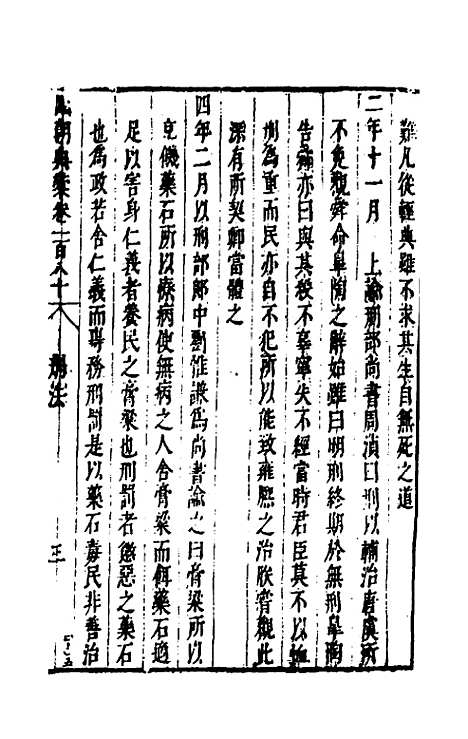 難凡從輕典雖不求其生自無死之道
二年十一月　上諭刑部尚書周滇曰刑以輔治唐虞所
不免觀舜命臯陶之辭始雖曰明刑終期於無刑臯陶
告舜亦曰與其殺不辜寧失不經當時君臣莫不以恤
刑為重而民亦自不犯所以能致雍熙之治朕嘗觀此
深有所契卿當體之
四年二月以刑部郎中劉惟謙為尚書諭之曰膏梁所以
充饑藥石所以療病使無病之人舍膏梁而餌藥石適
足以害身仁義者養民之膏梁也刑罰者懲惡之藥石
也為政若舍仁義而專務刑罰是以藥石毒民非善治
朝典彙卷一百八十　刑法